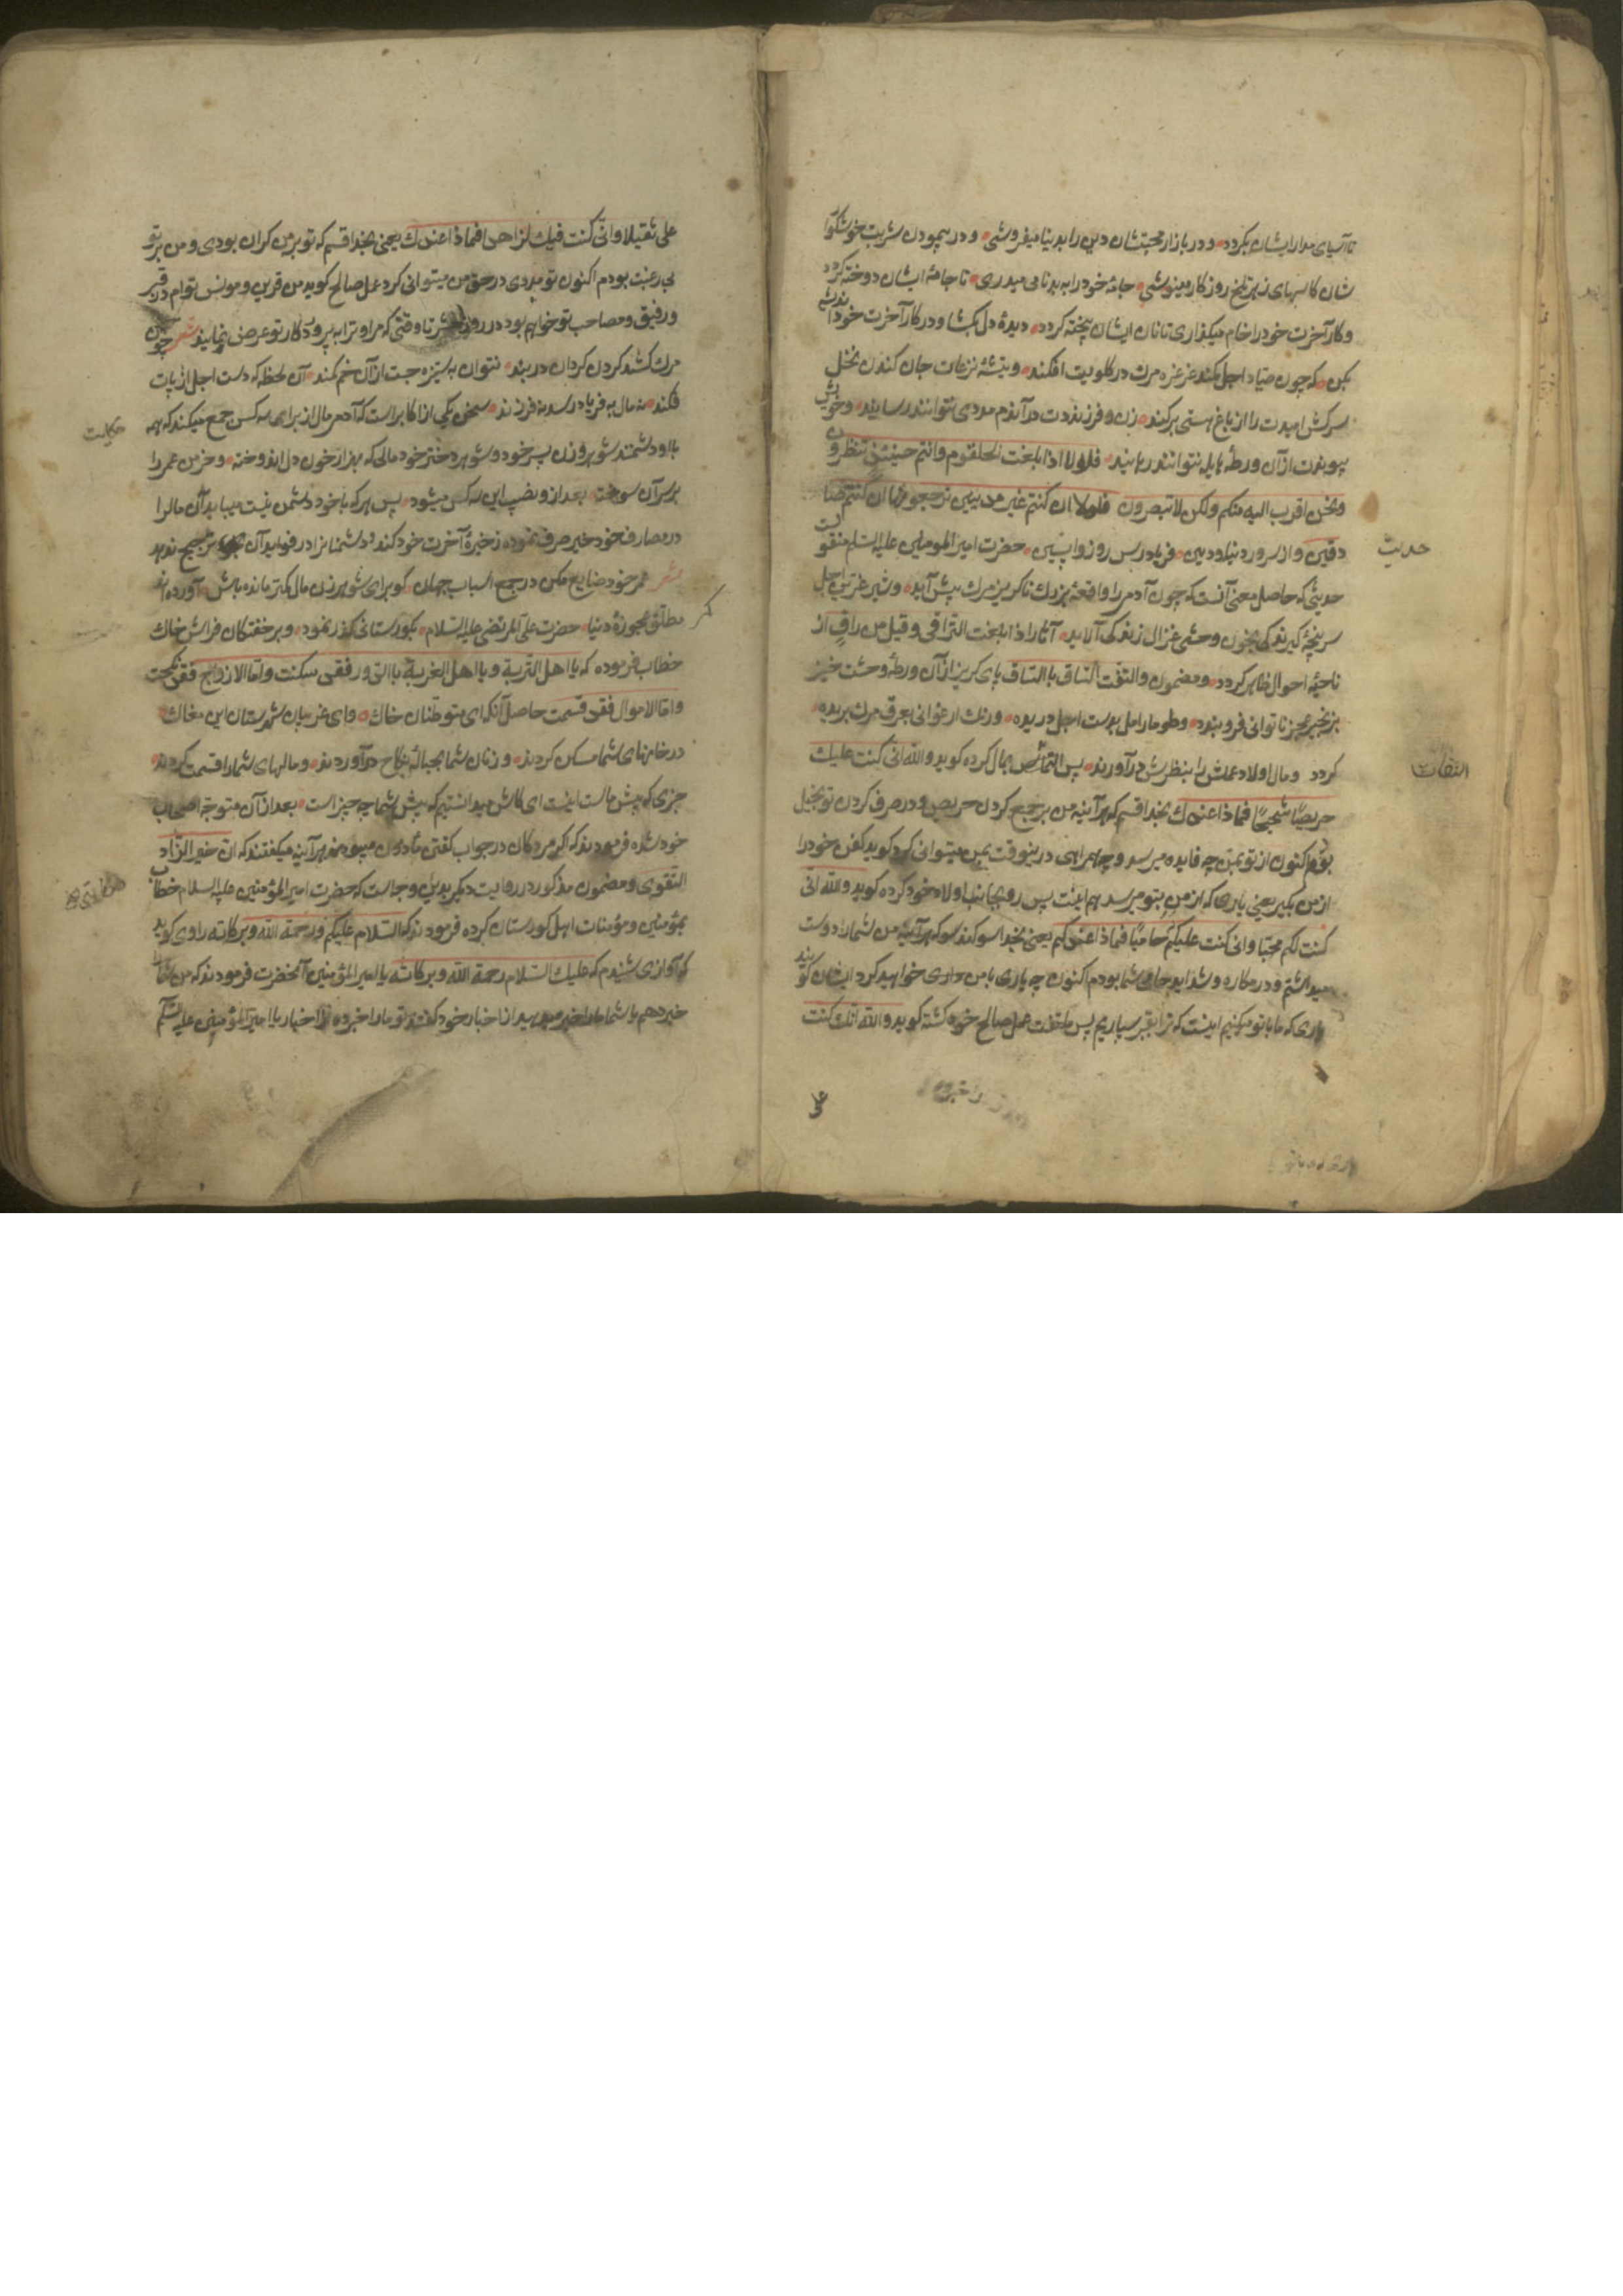 تا آسیای مدار ایشان بکردد و در بازار محبتشان دین را بدنیا میفروشی و در پیمودن شربت خوشکوا
شان کاسهای زهر تلخ روزکار مینوشی جامهٔ خود را به بدنامی میدری تا جامهٔ ایشان دوخته کردد
و کار آخرت خود را خام میکذاری تا نان ایشان پخته کردد دیدهٔ دل بکشا و در کار آخرت خود اندیشه
بکن که چون صیاد اجل کمند غرغره مرک در کلویت افکند و تیشهٔ نزعات جان کندن نخل
سرکش امیدت را از باغ هستی برکند زن و فرزندت در آندم مددی نتوانند رسانید و خویش
پیوندت از آن ورطهٔ هایله نتوانند رهانید فلولا اذا بلغت الحلقوم وانتم حینئذ تنظرون
ونحن اقرب الیه منکم ولکن لا تبصرون فلولا ان کنتم غیر مدینین ترجعونها ان کنتم صا
دقین و از سرور دنیا و دین فریادرس روز واپسین حضرت امیر المومنین علیه السلم منقو
لست
حدیث
حدیثی که حاصل معنی آنست که چون آدمی را واقعهٔ بزرک ناکریز مرک پیش آید و شیر عرین اجل
سر پنجهٔ کیرندکی بخون وحشی غزال زندکی آلاید آثار اذا بلغت التراقی وقیل من راق از
ناحیهٔ احوال ظاهر کردد و مضمون والتفت الساق بالساق پای کریز از آن ورطهٔ وحشت خیز
بزنجیر عجز ناتوانی فروبندد و طومار امل بدست اجل دریده و رنک ارغوانی بعرق مرک پریده
کردد و مال و اولاد و عملش را بنظرش درآورند پس التفات بمال کرده کوید والله انی کنت علیک
حریصا شحیحا فماذا عندک بخدا قسم که هرآینه من بر جمع کردن حریص و در صرف کردن تو بخیل
بودم اکنون از تو بمن چه فایده میرسد و چه همراهی در اینوقت بمن میتوانی کرد کوید کفن خود را
از من بکیر یعنی یاری که از من بتو میرسد همینست پس رو بجانب اولاد خود کرده کوید والله انی
کنت لکم محبا وانی کنت علیکم حامیا فماذا عندکم یعنی بخدا سوکند که هرآینه من شما را دوست
میداشتم و در مکاره و شداید حامی شما بودم اکنون چه یاری با من خواهید کرد ایشان کویند
یاری که ما با تو میکنیم اینست که ترا بقبر سپاریم پس ملتفت عمل صالح خود کشته کوید والله انک کنت
علی ثقیلا وانی کنت فیک لزاهدا فماذا عندک یعنی بخدا قسم که تو بر من کران بودی و من بر تو
بی رغبت بودم اکنون تو مددی در حق من میتوانی کرد عمل صالح کوید من قرین و مونس توام در قبر
و رفیق و مصاحب تو خواهم بود در روز حشر تا وقتی که مرا و ترا به پروردکار تو عرض نمایند شعر چون
مرک کشد کردن کردان در بند نتوان بستیزه جست از آن خم کمند آن لحظه که دست اجل از پات
فکند نه مال به فریاد رسد نه فرزند سخن یکی از اکابر است که آدمی مال از برای سه کس جمع میکند که همه
حکایت
با او دشمنند شوهر زن و زن پسر خود و شوهر دختر خود مالی که بهزار خون دل اندوخته و خرمن عمر را
بر سر آن سوخته بعد از و نصیب این سه کس میشود پس هر که با خود دشمن نیست میباید آن مال را
در مصارف خود خیر صرف نموده ذخیرهٔ آخرت خود کند و دشمنان را در فواید آن هیچ ندهد
شعر عمر خود ضایع مکن در جمع اسباب جهان کو برای شوهر زن مال کمتر مانده باش آورده اند که
مطلق عجوزهٔ دنیا حضرت علی المرتضی علیه السلام بکورستانی کذر نمود و بر خفتکان فراش خاک
خطاب فرموده که یا اهل التربة و یا اهل الغربة اما الدور فقد سکنت واما الازواج فقد نکحت
واما الاموال فقد قسمت حاصل آنکه ای متوطنان خاک و ای غریبان شهرستان این مغاک
در خانهای شما مسکن کردند و زنان شما بحبالهٔ نکاح درآوردند و مالهای شما را قسمت کردند
خبری که پیش ماست اینست ای کاش میدانستیم که پیش شما چه چیز است بعد از آن متوجه اصحاب
خود شده فرمودند که اکر مردکان در جواب کفتن مأذون میبودند هرآینه میکفتند که ان خیر الزاد
التقوی و مضمون مذکور در روایت دیکر بدین وجه است که حضرت امیر المؤمنین علیه السلام خطاب
بمؤمنین و مؤمنات اهل کورستان کرده فرمودند که السلام علیکم ورحمة الله وبرکاته راوی کوید
که آوازی شنیدم که علیک السلام ورحمة الله وبرکاته یا امیر المؤمنین آنحضرت فرمودند که من شما را
خبر دهم یا شما ما را خبر میدهید از اخبار خود کفتند تو ما را خبر ده از اخبار یا امیر المؤمنین علیه السلم